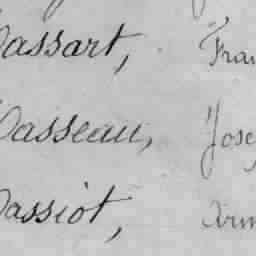 assart, Fran
asseau, Jose
assiot, Arm